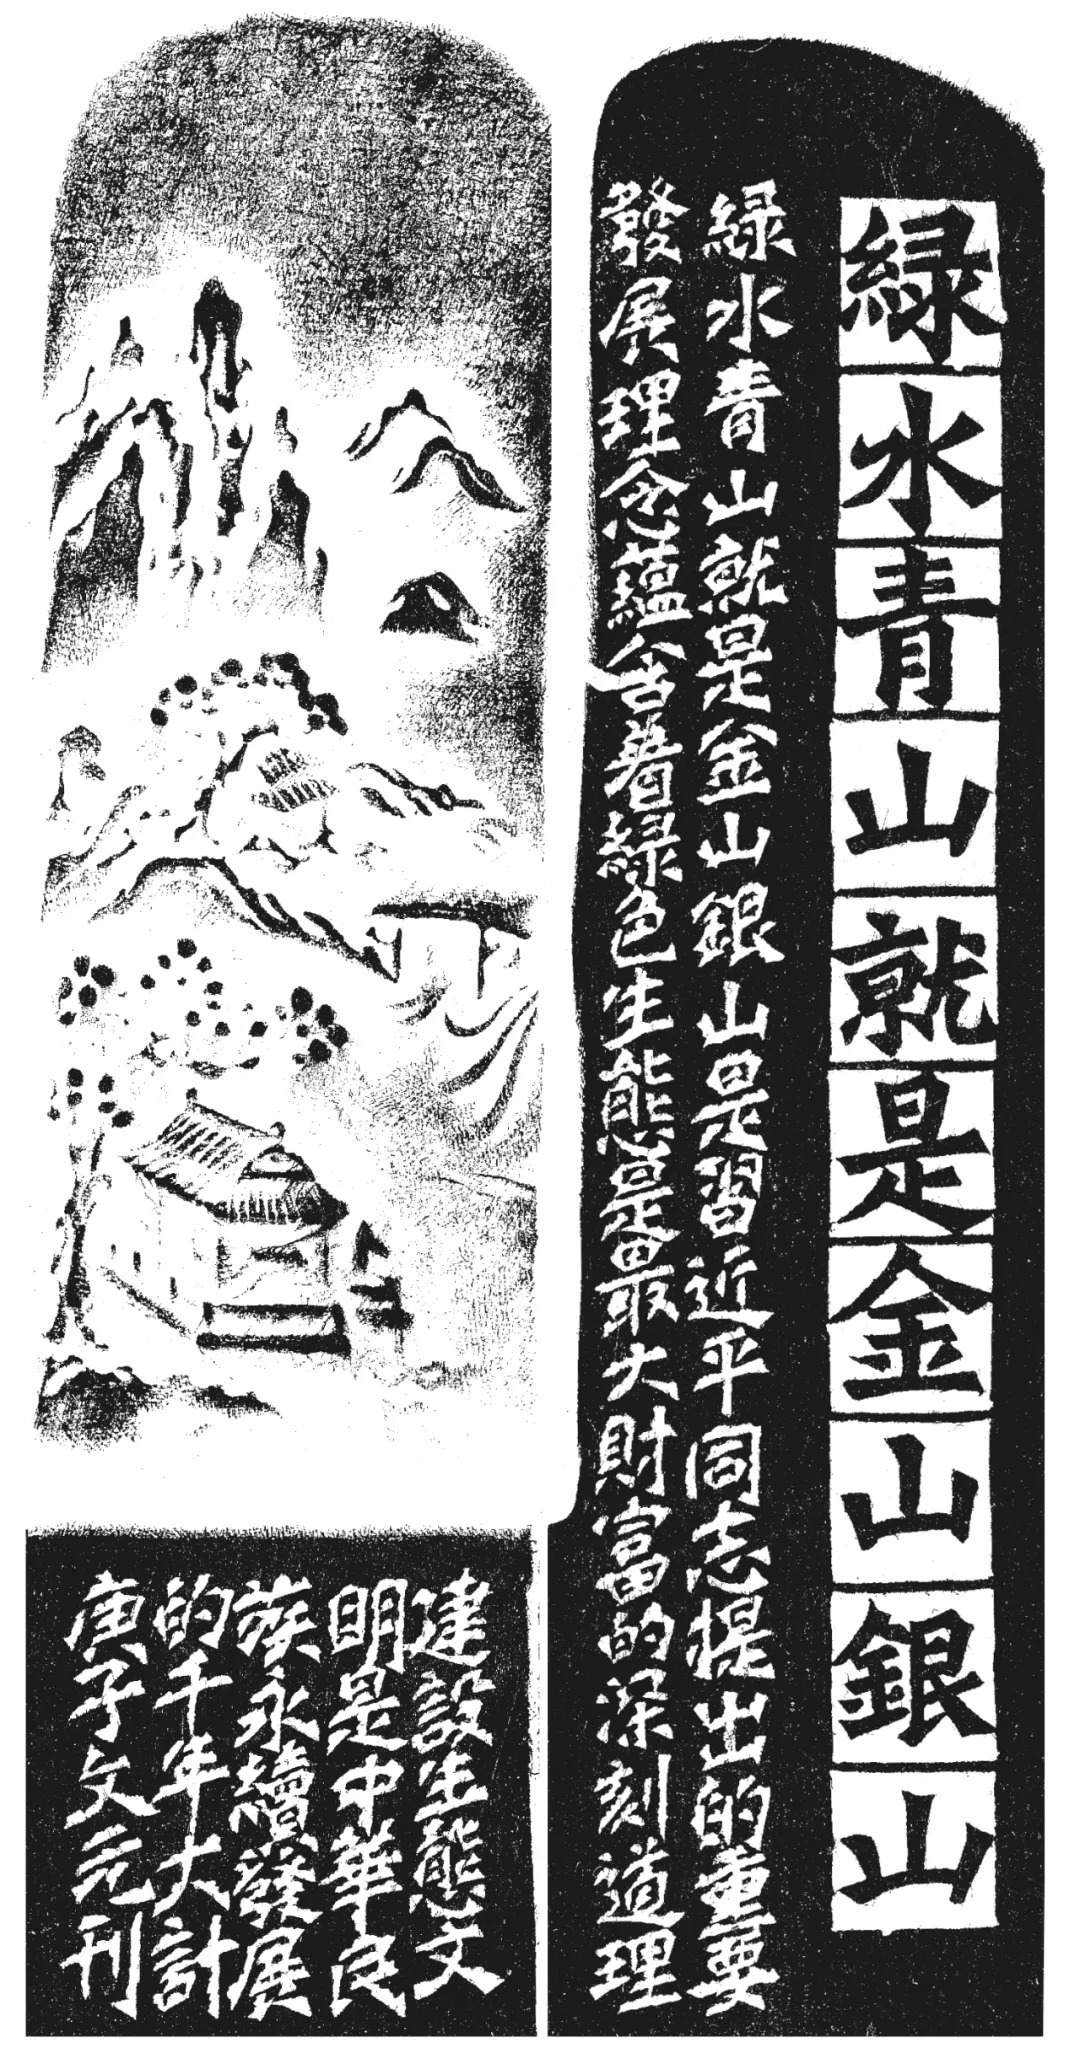 綠水青山就是金山銀山
綠水青山就是金山銀山是習近平同志提出的重要
發展理念蘊含著綠色生態是最大財富的深刻道理
建設生態文
明是中華民
族永續發展
的千年大計
庚子文元刊